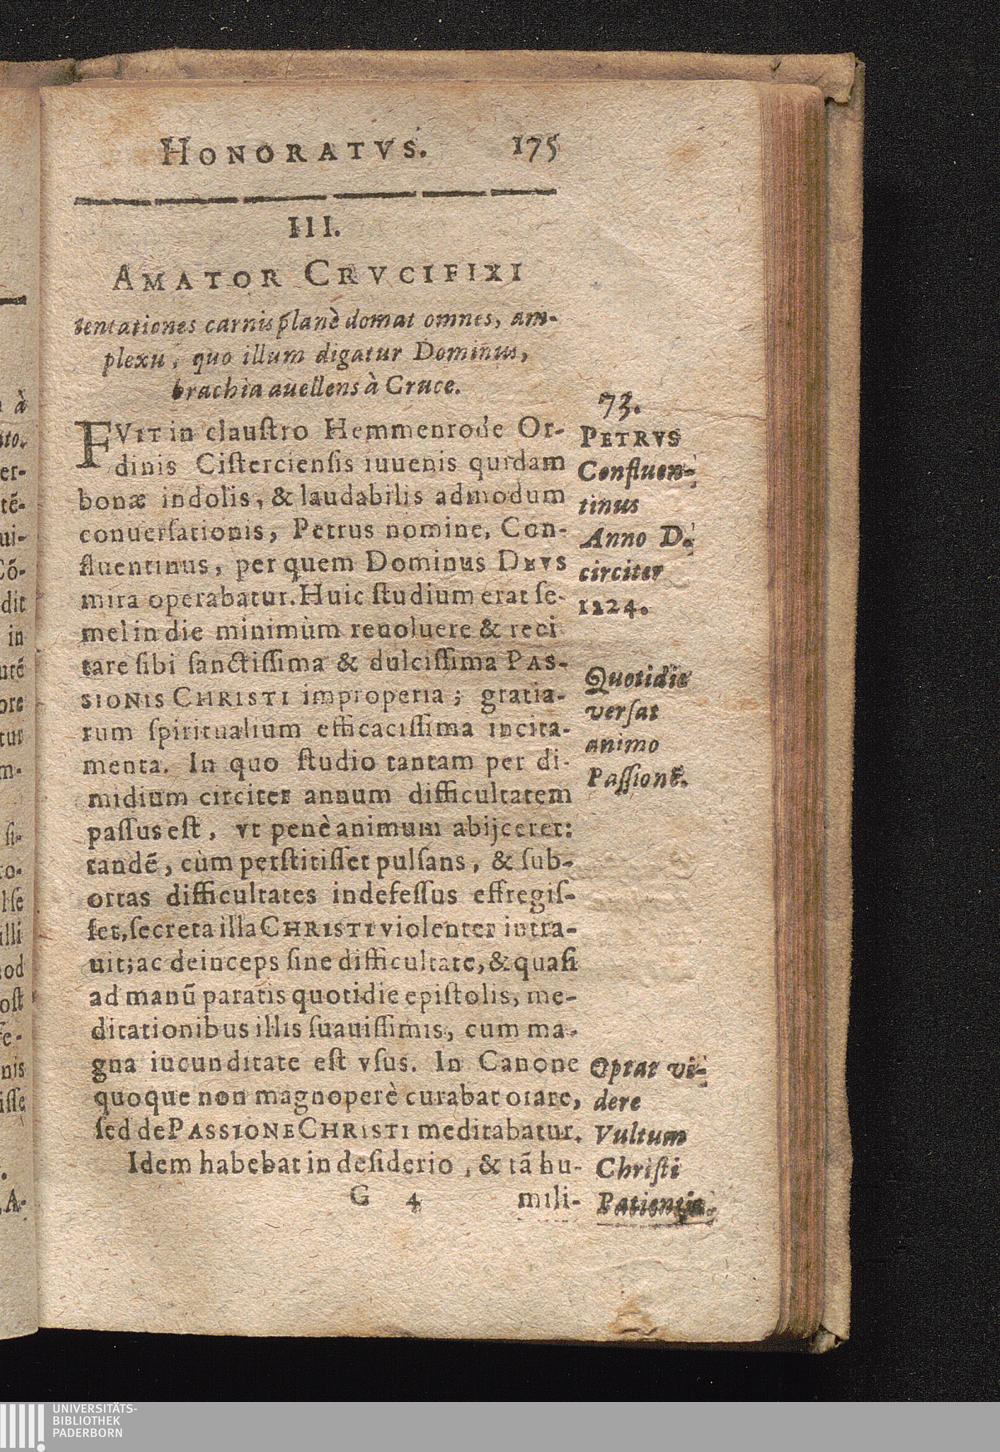 HONORATVS. 175
III.
AMATOR CRVCIFIXI
tentationes carnis planè domat omnes, am-
plexu, quo illum digatur Dominus,
brachia auellens à Cruce.
FVIT in clauſtro Hemmenrode Or-
dinis Ciſtercienſis iuuenis quidam
bonæ indolis, & laudabilis admodum
conuerſationis, Petrus nomine, Con-
fluentinus, per quem Dominus DEVS
mira operabatur. Huic ſtudium erat ſe-
mel in die minimùm reuoluere & reci
tare ſibi ſanctiſſima & dulciſſima PAS-
SIONIS CHRISTI improperia; gratia-
rum ſpiritualium efficaciſſima incita-
menta. In quo ſtudio tantam per di-
midium circiter annum difficultatem
paſſus eſt, vt penè animum abijceret:
tandẽ, cùm perſtitiſſet pulſans, & ſub-
ortas difficultates indefeſſus effregiſ-
ſet, ſecreta illa CHRISTI violenter intra-
uit; ac deinceps ſine difficultate, & quaſi
ad manũ paratis quotidie epiſtolis, me-
ditationibus illis ſuauiſſimis, cum ma-
gna iucunditate eſt vſus. In Canone
quoque non magnoperè curabat orare,
ſed de PASSIONE CHRISTI meditabatur.
Idem habebat in deſiderio, & tã hu-
G 4 mili-
73.
PETRVS
Confluen-
tinus
Anno D.
circiter
1224.
Quotidie
verſat
animo
Paſſionẽ.
Optat vi-
dere
Vultum
Chriſti
Patientis.
à
ato.
er-
tẽ-
ui-
Cõ-
dit
in
utẽ
ore
tur
m-
ſi-
ro-
lſe
illi
nod
oſt
fe-
nis
iſſe
A-
UNIVERSITÄTS-
BIBLIOTHEK
PADERBORN